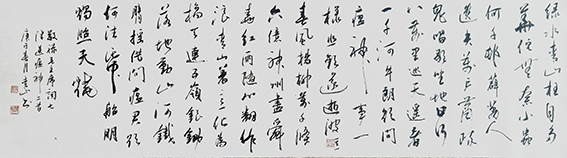 绿水青山枉自多
華佗無奈小蟲
何千村薜荔人
遺矢萬户蕭疏
鬼唱歌坐地日行
八萬里巡天遥看
一千河牛郎欲問
瘟神事一
樣悲歡逐逝波
春風楊柳萬千條
六億神州盡舜
堯紅雨隨心翻作
浪青山着意化為
橋天連五嶺銀鋤
落地動三河鐵
臂摇借問瘟君欲
何往紙船明
燭照天燒
敬録毛主席詞七
律送瘟神二首
庚子春月